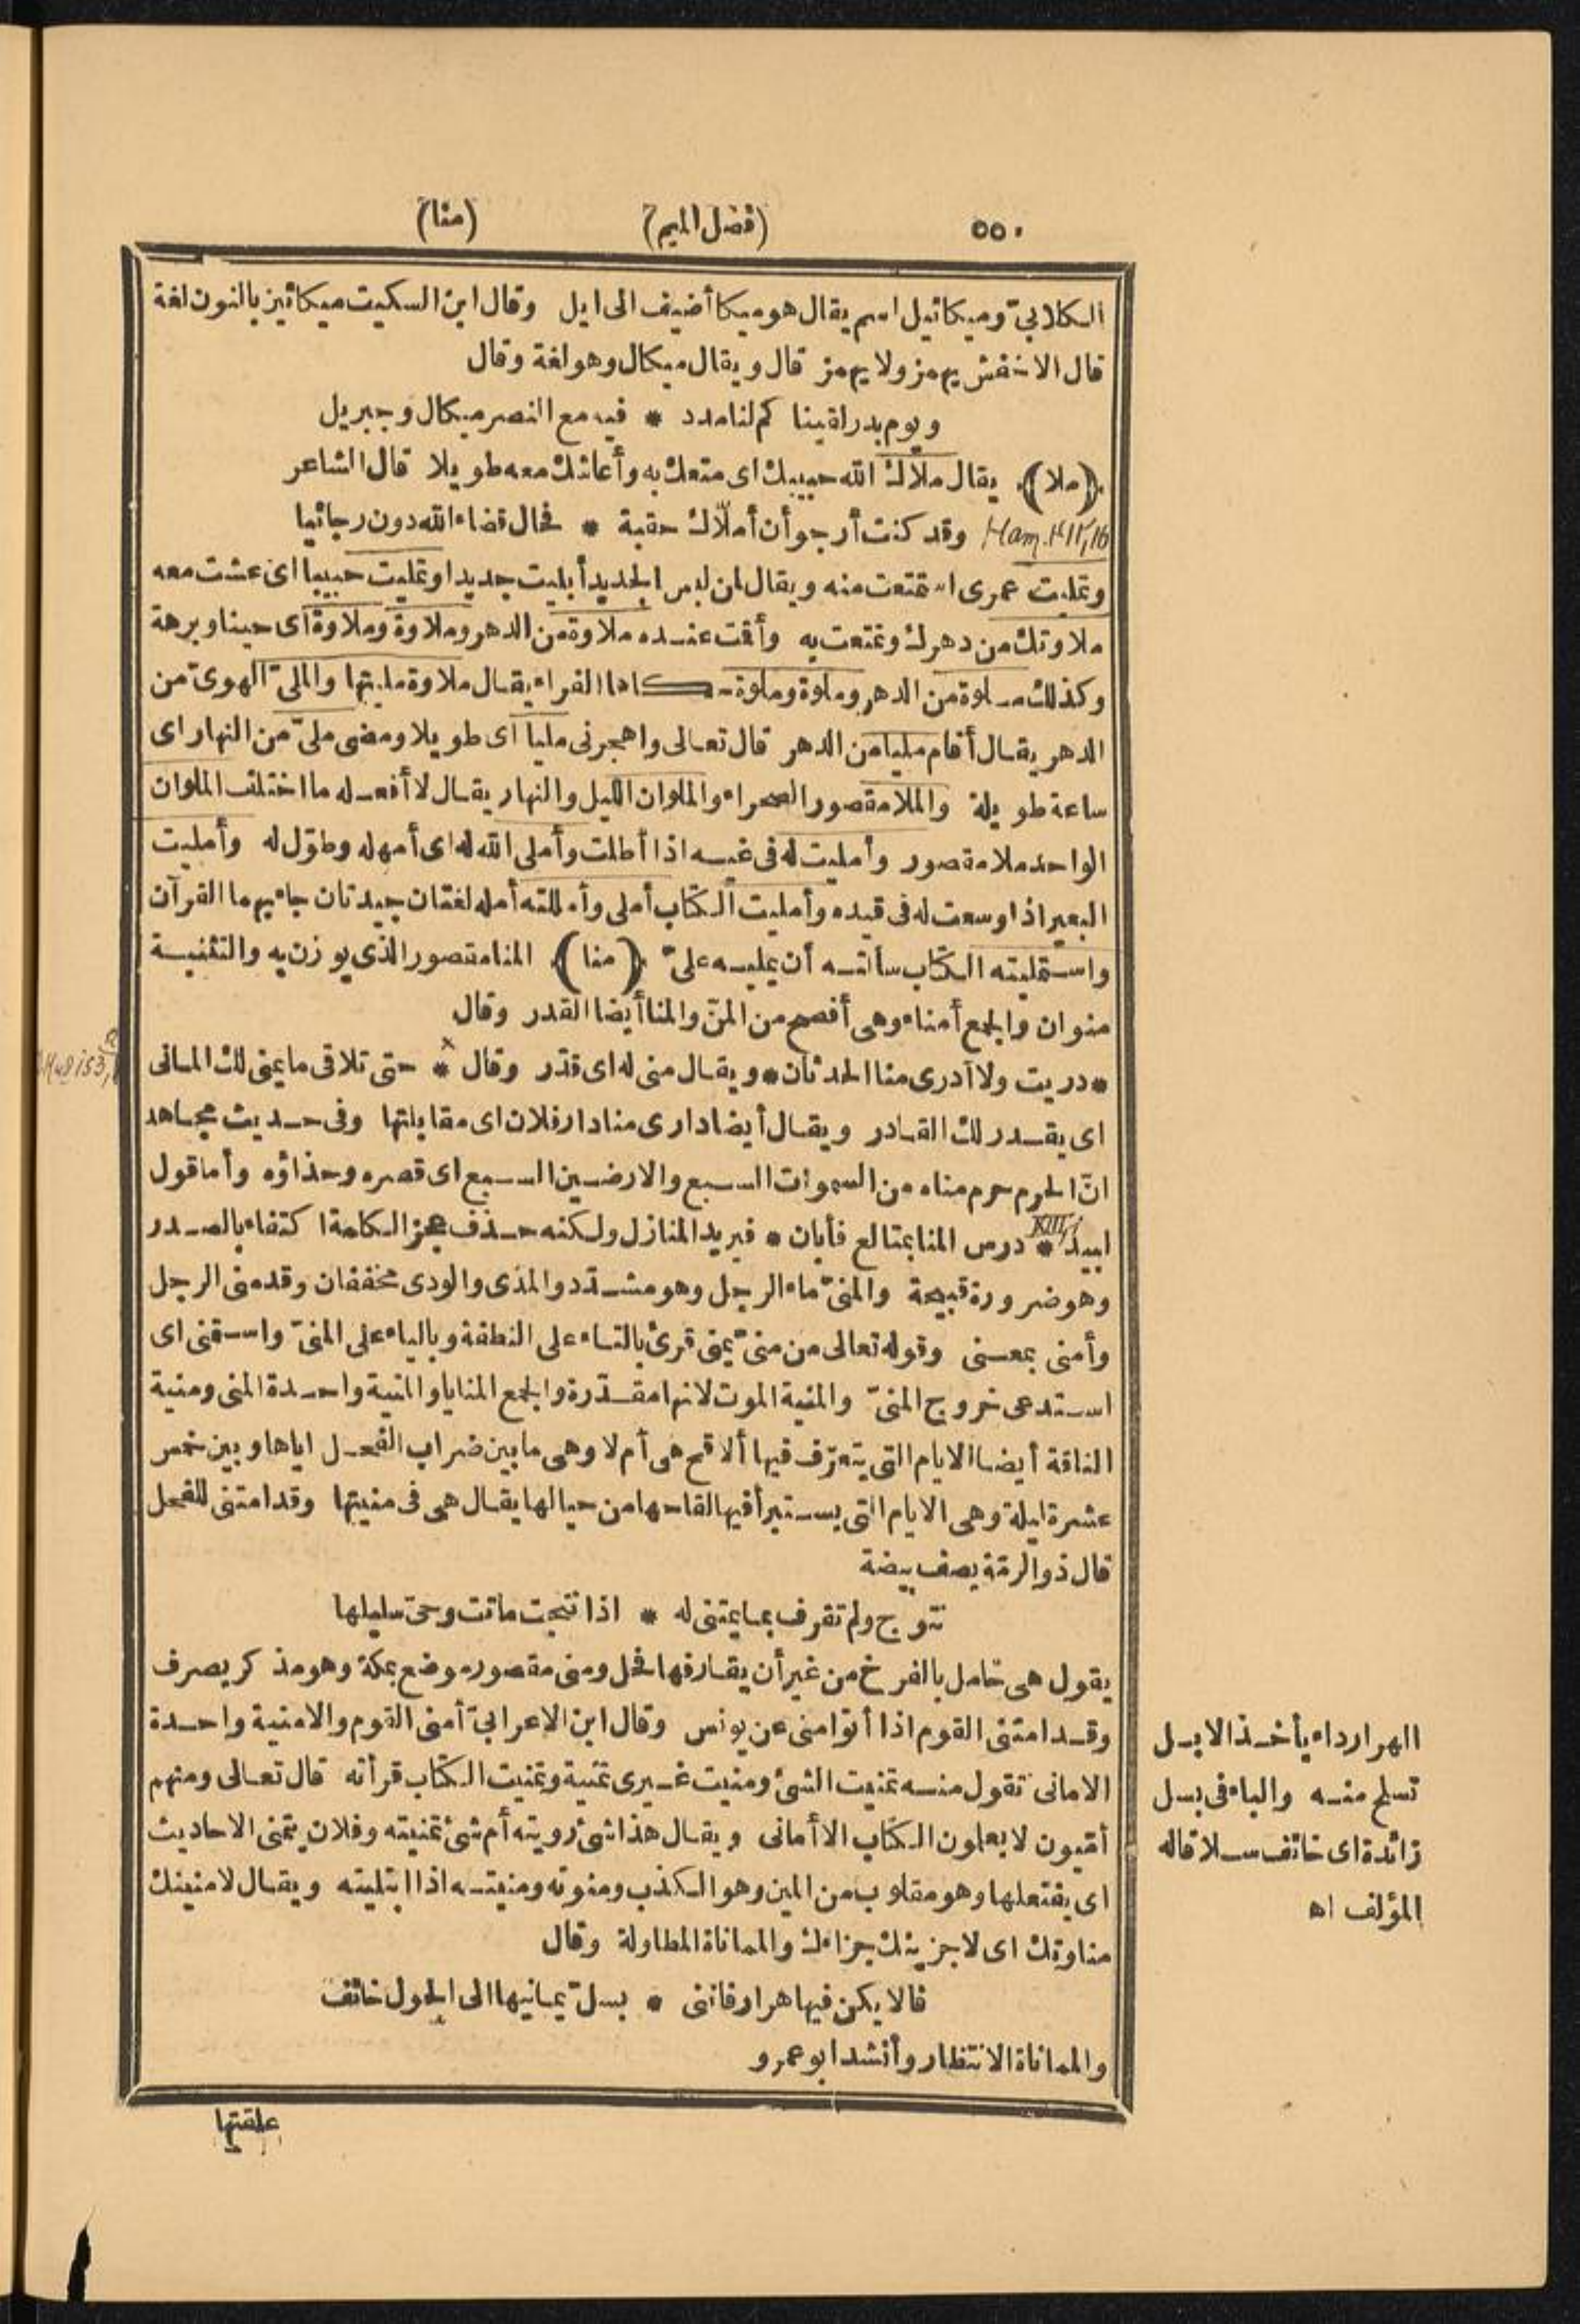 ٥٥٠
(فصل الميم)
(منا)
الكلابيّ وميكائيل اسم يقال هو ميكا أضيف الى ايل وقال ابن السكيت ميكائين بالنون لغة
قال الاخفش يهمز ولا يهمز قال ويقال ميكال وهو لغة وقال
ويوم بدر لقينا كم لنا مدد * فيه مع النصر ميكال وجبريل
(ملا) يقال ملّاك الله حبيبك اى متعك به وأعاشك معه طويلا قال الشاعر
Ham. وقد كنت أرجو أن أملّاك حقبة * فحال قضاء الله دون رجائيا
وتمليت عمرى استمتعت منه ويقال لمن لبس الجديد أبليت جديدا وتمليت حبيبا اى عشت معه
ملاوتك من دهرك وتمتعت به وأقت عنده ملاوة من الدهر وملاوة وملاوة اى حينا وبرهة
وكذلك ملوة من الدهر وملوة وملوة حكاها الفراء يقال ملاوة مليتها والملىّ الهوىّ من
الدهر يقال أقام مليا من الدهر قال تعالى واهجرنى مليا اى طويلا ومضى ملىّ من النهار اى
ساعة طويلة والملا مقصور الصحراء والملوان الليل والنهار يقال لا أفعله ما اختلف الملوان
الواحد ملا مقصور وأمليت له فى غيه اذا أطلت وأملى الله له اى أمهله وطوّل له وأمليت
البعير اذا وسعت له فى قيده وأمليت الكتاب أملى وأمللته أمله لغتان جيدتان جاء بهما القرآن
واستمليته الكتاب سألته أن يمليه علىّ (منا) المنا مقصور الذى يوزن به والتثنية
منوان والجمع أمناء وهى أفصح من المنّ والمنا أيضا القدر وقال
* دريت ولا أدرى منا الحدثان * ويقال منى له اى قدّر وقال * حتى تلاقى ما يمنى لك المانى
اى يقدر لك القادر ويقال أيضا دارى منا دار فلان اى مقابلتها وفى حديث مجاهد
انّ الحرم حرم مناه من السموات السبع والارضين السبع اى قصره وحذاؤه وأما قول
لبيد XIII * درس المنا بمتالع فأبان * فيريد المنازل ولكنه حذف عجز الكلمة اكتفاء بالصدر
وهو ضرورة قبيحة والمنىّ ماء الرجل وهو مشدّد والمذى والودى مخففان وقد منى الرجل
وأمنى بمعنى وقوله تعالى من منىّ يمنى قرئ بالتاء على النطفة وبالياء على المنىّ واستمنى اى
استدعى خروج المنىّ والمنية الموت لانها مقدّرة والجمع المنايا والمنية واحدة المنى ومنية
الناقة أيضا الايام التى يتعرّف فيها ألاقح هى أم لا وهى ما بين ضراب الفحل اياها وبين خمس
عشرة ليلة وهى الايام التى يستبرأ فيها لقاحها من حيالها يقال هى فى منيتها وقد امتنى للفحل
قال ذو الرمّة يصف بيضة
نتوج ولم تقرف بما يمتنى له * اذا نتجت ماتت وحىّ سليلها
يقول هى حامل بالفرخ من غير أن يقارفها فحل ومنى مقصور موضع بمكة وهو مذكر يصرف
وقد امتنى القوم اذا أتوا منى عن يونس وقال ابن الاعرابىّ أمنى القوم والامنية واحدة
الامانى تقول منه تمنيت الشئ ومنيت غيرى تمنية وتمنيت الكتاب قرأته قال تعالى ومنهم
أمّيون لا يعلمون الكتاب الا أمانى ويقال هذا شئ رويته أم شئ تمنيته وفلان يتمنى الاحاديث
اى يفتعلها وهو مقلوب من المين وهو الكذب ومنوته ومنيته اذا ابتليته ويقال لامنينك
مناوتك اى لاجزينك جزاءك والمماناة المطاولة وقال
فالا يكن فيها هرار فاننى * بسلّ يمانيها الى الحول خائف
والمماناة الانتظار وأنشد ابو عمرو
علقتها
الهرار داء يأخذ الابل
تسلح منه والباء فى بسل
زائدة اى خائف سلا قاله
المؤلف اه